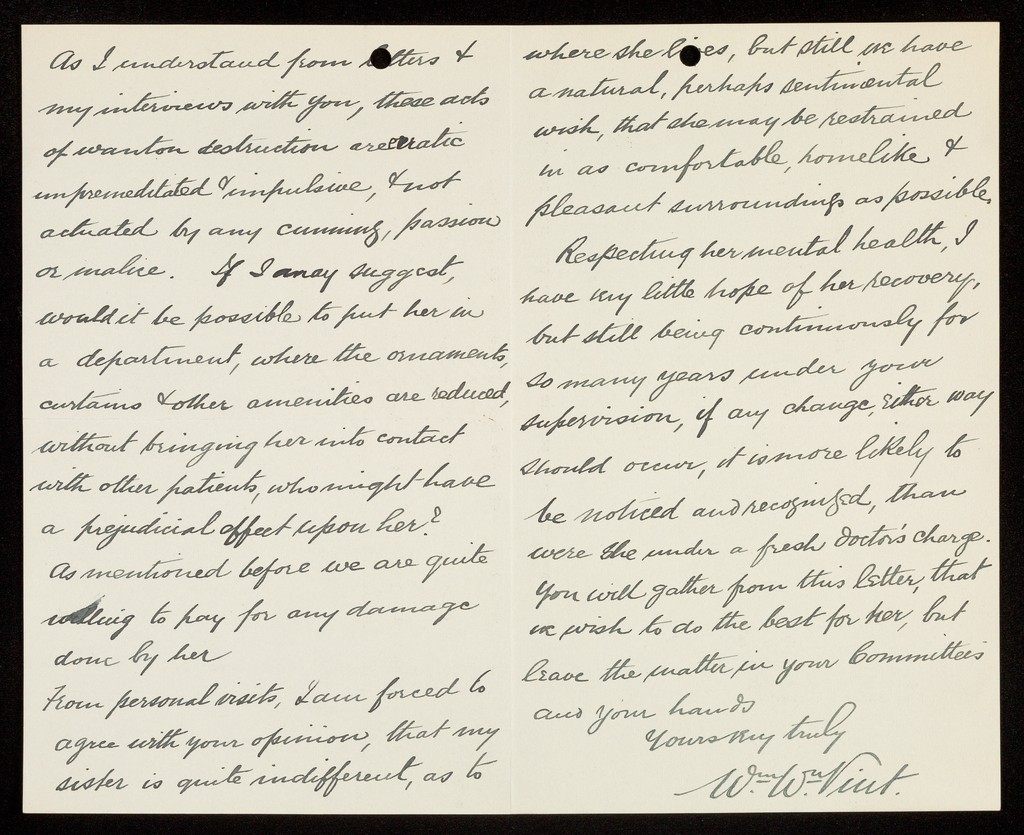 As I understand from letters &
my interviews with you, these acts
of wanton destruction are erratic
unpremeditated & impulsive, & not
actuated by any cunning, passion
or malice. If I may suggest,
would it be possible to put her in
a department, where the ornaments,
curtains & other amenities are reduced,
without bringing her into contact
with other patients, who might have
a prejudicial effect upon her?
As mentioned before we are quite
willing to pay for any damage
done by her
From personal visits, I am forced to
agree with your opinion, that my
sister is quite indifferent, as to
where she lives, but still we have
a natural, perhaps sentimental
wish, that she may be restrained
in as comfortable, homelike &
pleasant surroundings as possible.
Respecting her mental health, I
have very little hope of her recovery,
but still being continuously for
so many years under your
supervision, if any change, either way
should occur, it is more likely to
be noticed and recognized, than
were she under a fresh doctor's charge.
You will gather from this letter, that
we wish to do the best for her, but
leave the matter in your Committee's
and your hands
Yours very truly
Wm. Wm. Vint.